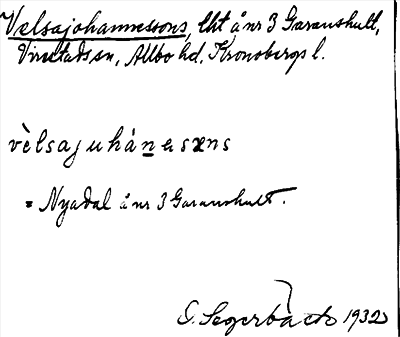 Velsajohannessons, lht å nr 3 Garanshult,
Virestads sn, Allbo hd, Kronobergs l.
vèlsajuhánasxns
= Nyadal å nr 3 Garanshult.
C. Segerbäck 1932